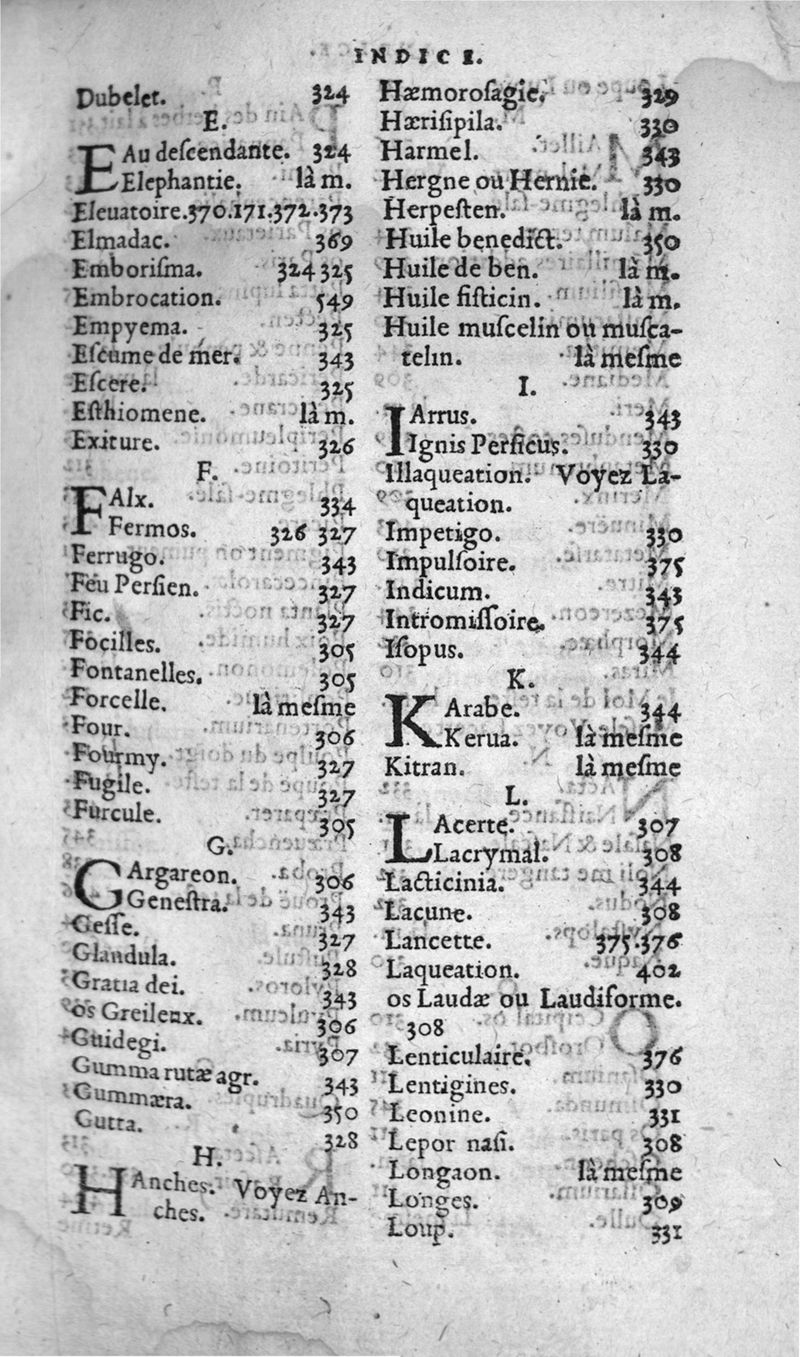 INDICE.
Dubelet. 324
E.
EAu deſcendante. 324
Elephantie. là m.
Eleuatoire.370.171.372.373
Elmadac. 369
Emboriſma. 324 325
Embrocation. 549
Empyema. 325
Eſcume de mer. 343
Eſcere. 325
Eſthiomene. là m.
Exiture. 326
F.
FAlx. 334
Fermos. 326 327
Ferrugo. 343
Feu Perſien. 327
Fic. 327
Focilles. 305
Fontanelles. 305
Forcelle. là meſme
Four. 306
Fourmy. 327
Fugile. 327
Furcule. 305
G.
GArgareon. 306
Geneſtra. 343
Geſſe. 327
Glandula. 328
Gratia dei. 343
os Greileux. 306
Guidegi. 307
Gumma rutæ agr. 343
Gummæra. 350
Gutta. 328
H.
HAnches. Voyez An-
ches.
Hæmoroſagie. 329
Hæriſipila. 330
Harmel. 343
Hergne ou Hernie. 330
Herpeſten. là m.
Huile benedict. 350
Huile de ben. là m.
Huile ſiſticin. là m.
Huile muſcelin ou muſca-
telin. là meſme
I.
IArrus. 343
Ignis Perſicus. 330
Illaqueation. Voyez La-
queation.
Impetigo. 330
Impulſoire. 375
Indicum. 343
Intromiſſoire. 375
Iſopus. 344
K.
KArabe. 344
Kerua. là meſme
Kitran. là meſme
L.
LAcerte. 307
Lacrymal. 308
Lacticinia. 344
Lacune. 308
Lancette. 375.376
Laqueation. 402
os Laudæ ou Laudiforme.
308
Lenticulaire. 376
Lentigines. 330
Leonine. 331
Lepor naſi. 308
Longaon. là meſme
Longes. 309
Loup. 331